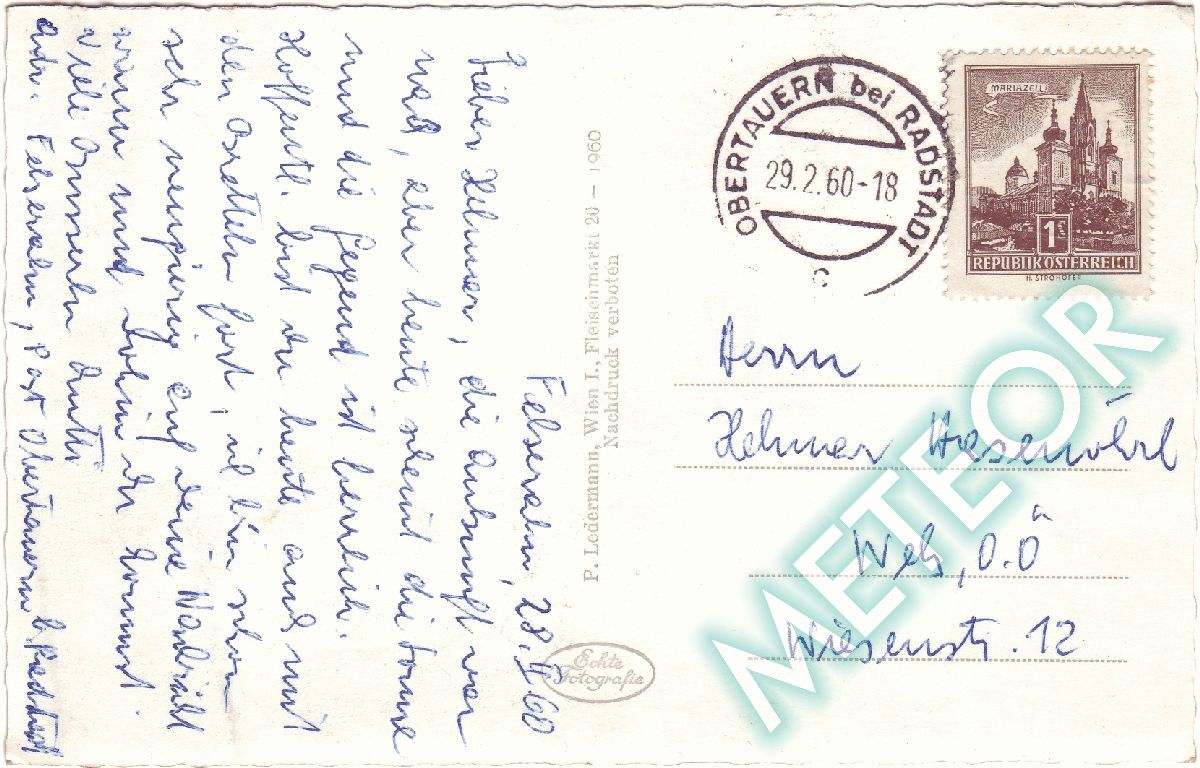 Felseralm, 28. II. 60
Lieber Helmar, die Ankunft war
naß, aber heute scheint die Sonne
und die Gegend ist herrlich.
Hoffentl. bist du heute auch mit
den Bretteln fort, ich bin schon
sehr neugierig auf deine Nachricht
wann und wohin du kommst.
Viele Grüsse
Adr. Felseralm, Post Obertauern b. Radstadt
P. Ledermann, Wien I., Fleischmarkt 20 – 1960
Nachdruck verboten
Echte
Fotografie
OBERTAUERN bei RADSTADT
29.2.60-18
c
MARIAZELL
1S
REPUBLIK ÖSTERREICH
H. STROHOFER
Herrn
Helmar
Wels, O.Ö
Wiesenstr. 12
METEOR